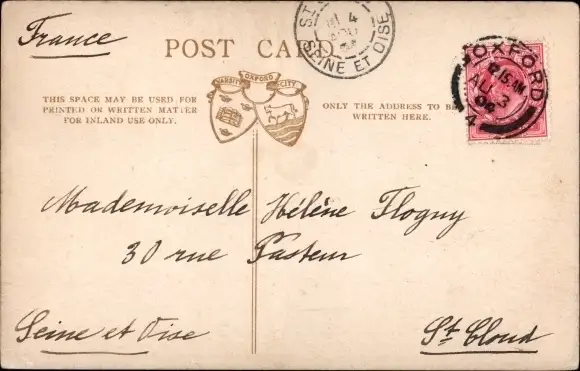 France
POST CARD
SEINE ET OISE
OXFORD
VARSITY OXFORD CITY
THIS SPACE MAY BE USED FOR
PRINTED OR WRITTEN MATTER
FOR INLAND USE ONLY.
ONLY THE ADDRESS TO BE
WRITTEN HERE.
Mademoiselle Hélène Flogny
30 rue Pasteur
Seine et Oise
St Cloud